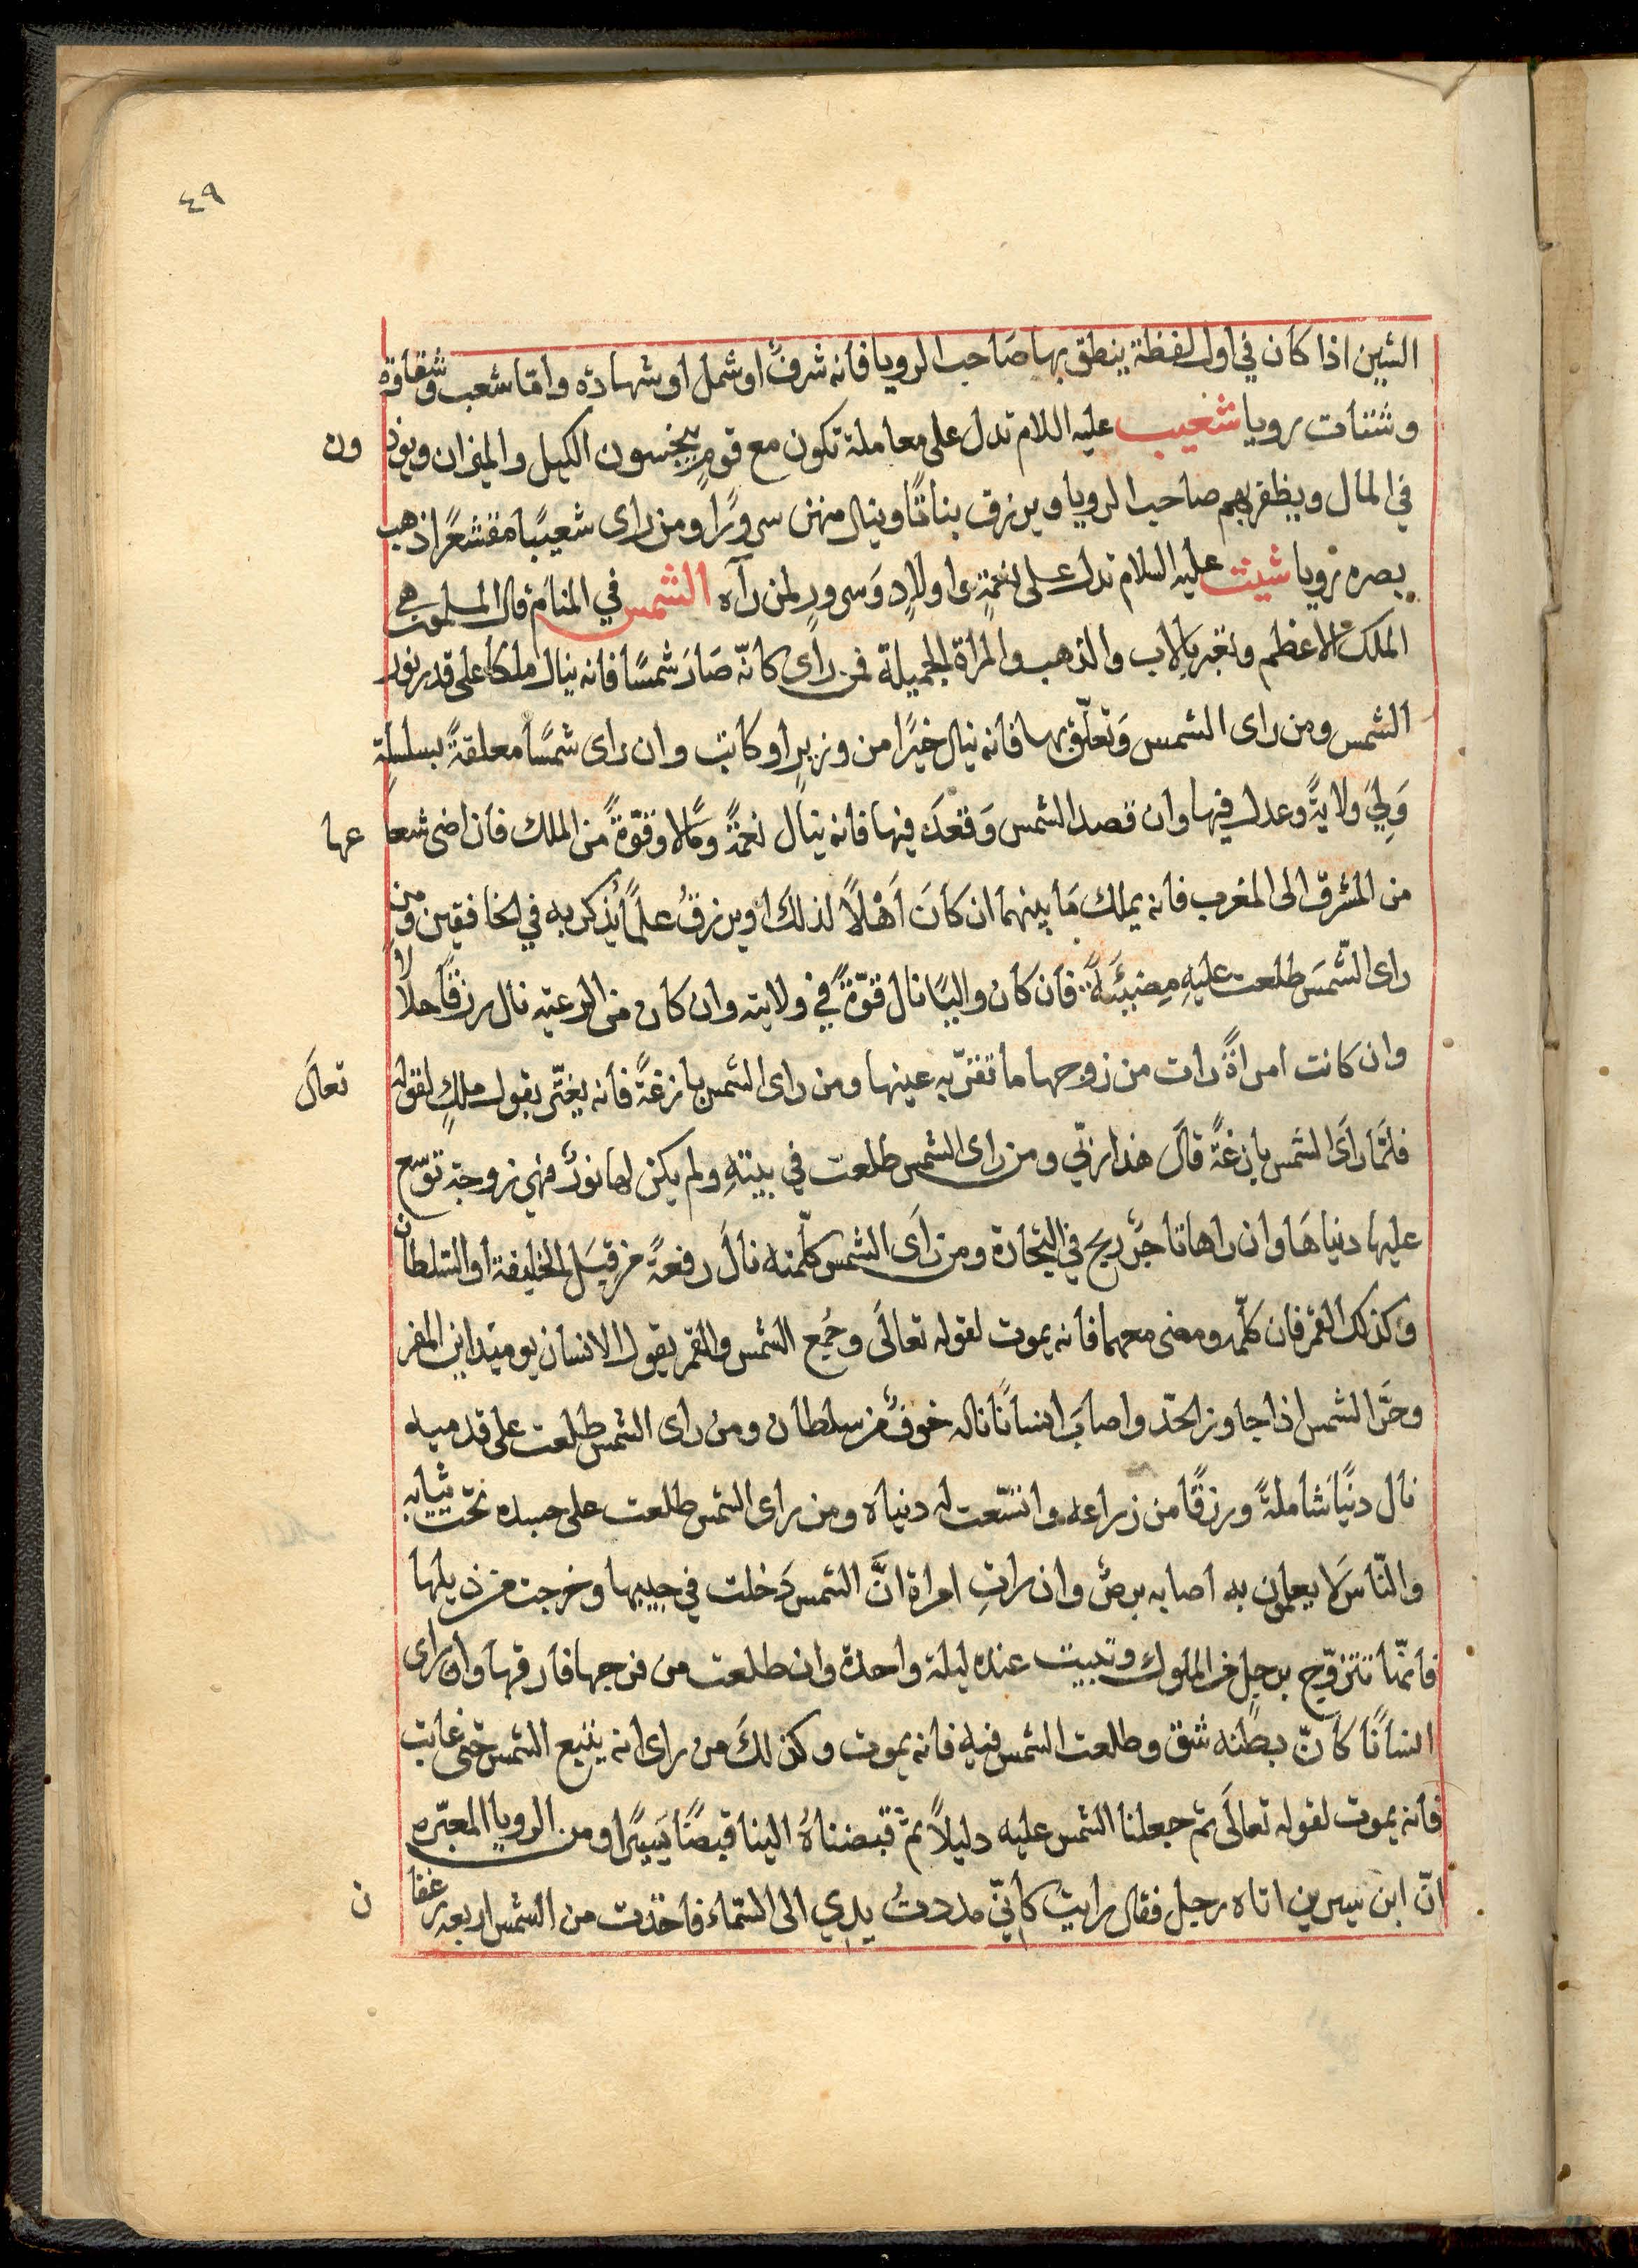 ٤٩
الشين اذا كان في اول لفظة ينطق بها صَاحب الرويا فانه شرفٌ او شمل او شهادة وامّا شعب وشقاوة
وشتات رويا شعيب عليه اللام تدل على معاملة تكون مع قومٍ يبخسون الكيل والميزان ويوذ ون
في المال ويظفر بهم صاحب الرويا ويرزق بناتًا وينال منهن سرورًا ومن راى شعيبًا مقشعرًا ذهب
بصره رويا شيث عليه السلام تدل على نعمةٍ واولادٍ وَسرورٍ لمن رآه الشمس في المنام قال المسلمون هي
الملك الاعظم وتعبر بالاب والذهب والمراة الجميلة فمن راى كانّه صَارَ شمسًا فانه ينال ملكا على قدر نور
الشمس ومن راى الشمس وَتعلّق بها فانه ينال خيرًا من وزيرٍ او كاتب وان راى شمسًا معلقةً بسلسلةٍ
وَلِيَ ولايةً وعدل فيها وان قصد الشمس وَقعَدَ فيها فانه ينال نعمةً ومالا وقوّةً من الملك فان اضى شعا عها
من المشرق الى المغرب فانه يملك مَا بينهما ان كَانَ اَهْلاً لذلكَ او يرزقُ علمًا يُذكر به في الخافقين ومن
راى الشّمسَ طلعت عليهِ مضيئةً فان كان واليًا نال قوّةً في ولايته وان كان من الرعيّه نال رزقًا حلالا
وان كانت امراةً رات من زوجها ما تقرّ به عينها ومن راى الشمس بازغةً فانه يغترّ بقول ملكٍ لقوله تعالَى
فلمّا رآى الشمس بازغةً قالَ هذا ربّي ومن راى الشمس طلعت في بيتهِ ولم يكن لها نورٌ فهي زوجة توسع
عليها دنياهَا وان راها تاجرٌ ربح في التجارة ومن رَاَى الشمس كلّمته نالَ رفعةً من قِبَلِ الخليفة او السّلطان
وكذلك القمر فان كلّمه ومضى معهما فانه يموت لقوله تعالَى وجُمع الشمس والقمر يقول الانسان يوميذ اين المفر
وحَرَّ الشمس اذا جاوز الحدّ واصابَ انسانًا ناله خوفٌ من سلطان ومن راى الشمس طلعت على قدميه
نال دنيًا شاملةً ورزقًا من زراعه واتسّعت له دنياه ومن راى الشمس طلعت على جسده تحت ثيابه
والنّاس لا يعلمون به اصابه برصٌ وان راتِ امراة انَّ الشمس دَخلت في جيبها وخرجت من ذيلها
فانّها تتزوّج برجلٍ من الملوك وتبيت عنده ليلة واحدة وان طلعت من فرجها فارقها وان راى
انسانًا كانّ بطنه شق وطلعت الشمس فيه فانه يموت وكذلكَ من راى انه يتبع الشمس حتى غابت
فانه يموت لقوله تعالَى ثم جعلنا الشمس عليه دليلاً ثمّ قبضناهُ الينا قبضًا يَسيرًا ومن الرويا المعبّره
انّ ابن سيرين اتاه رجل فقال رايت كانّي مددتُ يدي الى السّماء فاخذت من الشمس اربعه رغفا ن